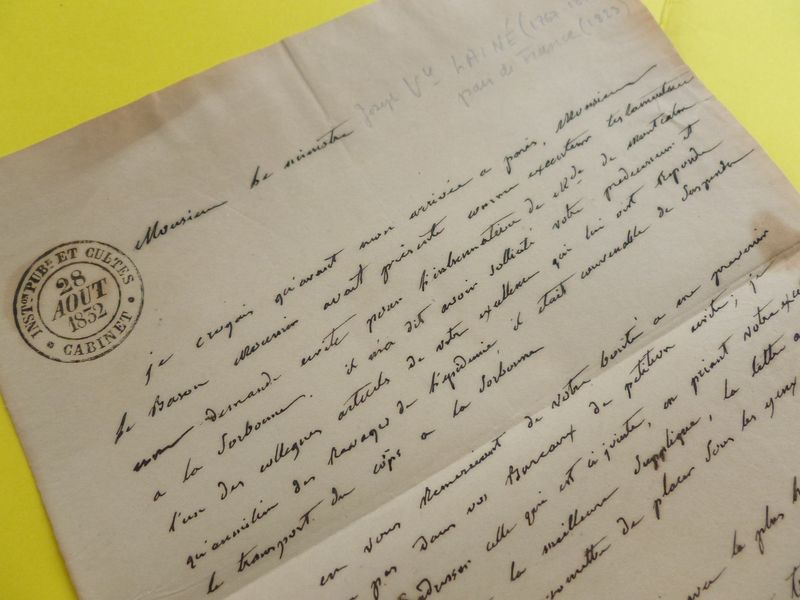 Joseph Vte LAINÉ (1767-18
pair de France (1823)
Monsieur le ministre
INSTon PUBe ET CULTES
28
AOUT
1832
* CABINET *
je croyais qu'avant mon arrivée a paris, Monsieur
le Baron Mounier avait présenté comme executeur testamentaire
une demande écrite pour l'inhumation de Mde de Montcalm
a la Sorbonne. il m'a dit avoir sollicité votre predecesseur et
l'un des collegues actuels de votre excellence qui lui ont repondu
qu'au milieu des ravages de l'epidemie, il était convenable de suspendre
le transport du corps a la Sorbonne
en vous remerciant de votre bonté a me prevenir
pas dans vos Bureaux de petition écrite; je
adresser celle qui est cy jointe, en priant votre exce
la meilleure supplique, la lettre a
permettre de placer sous les yeux
le plus h